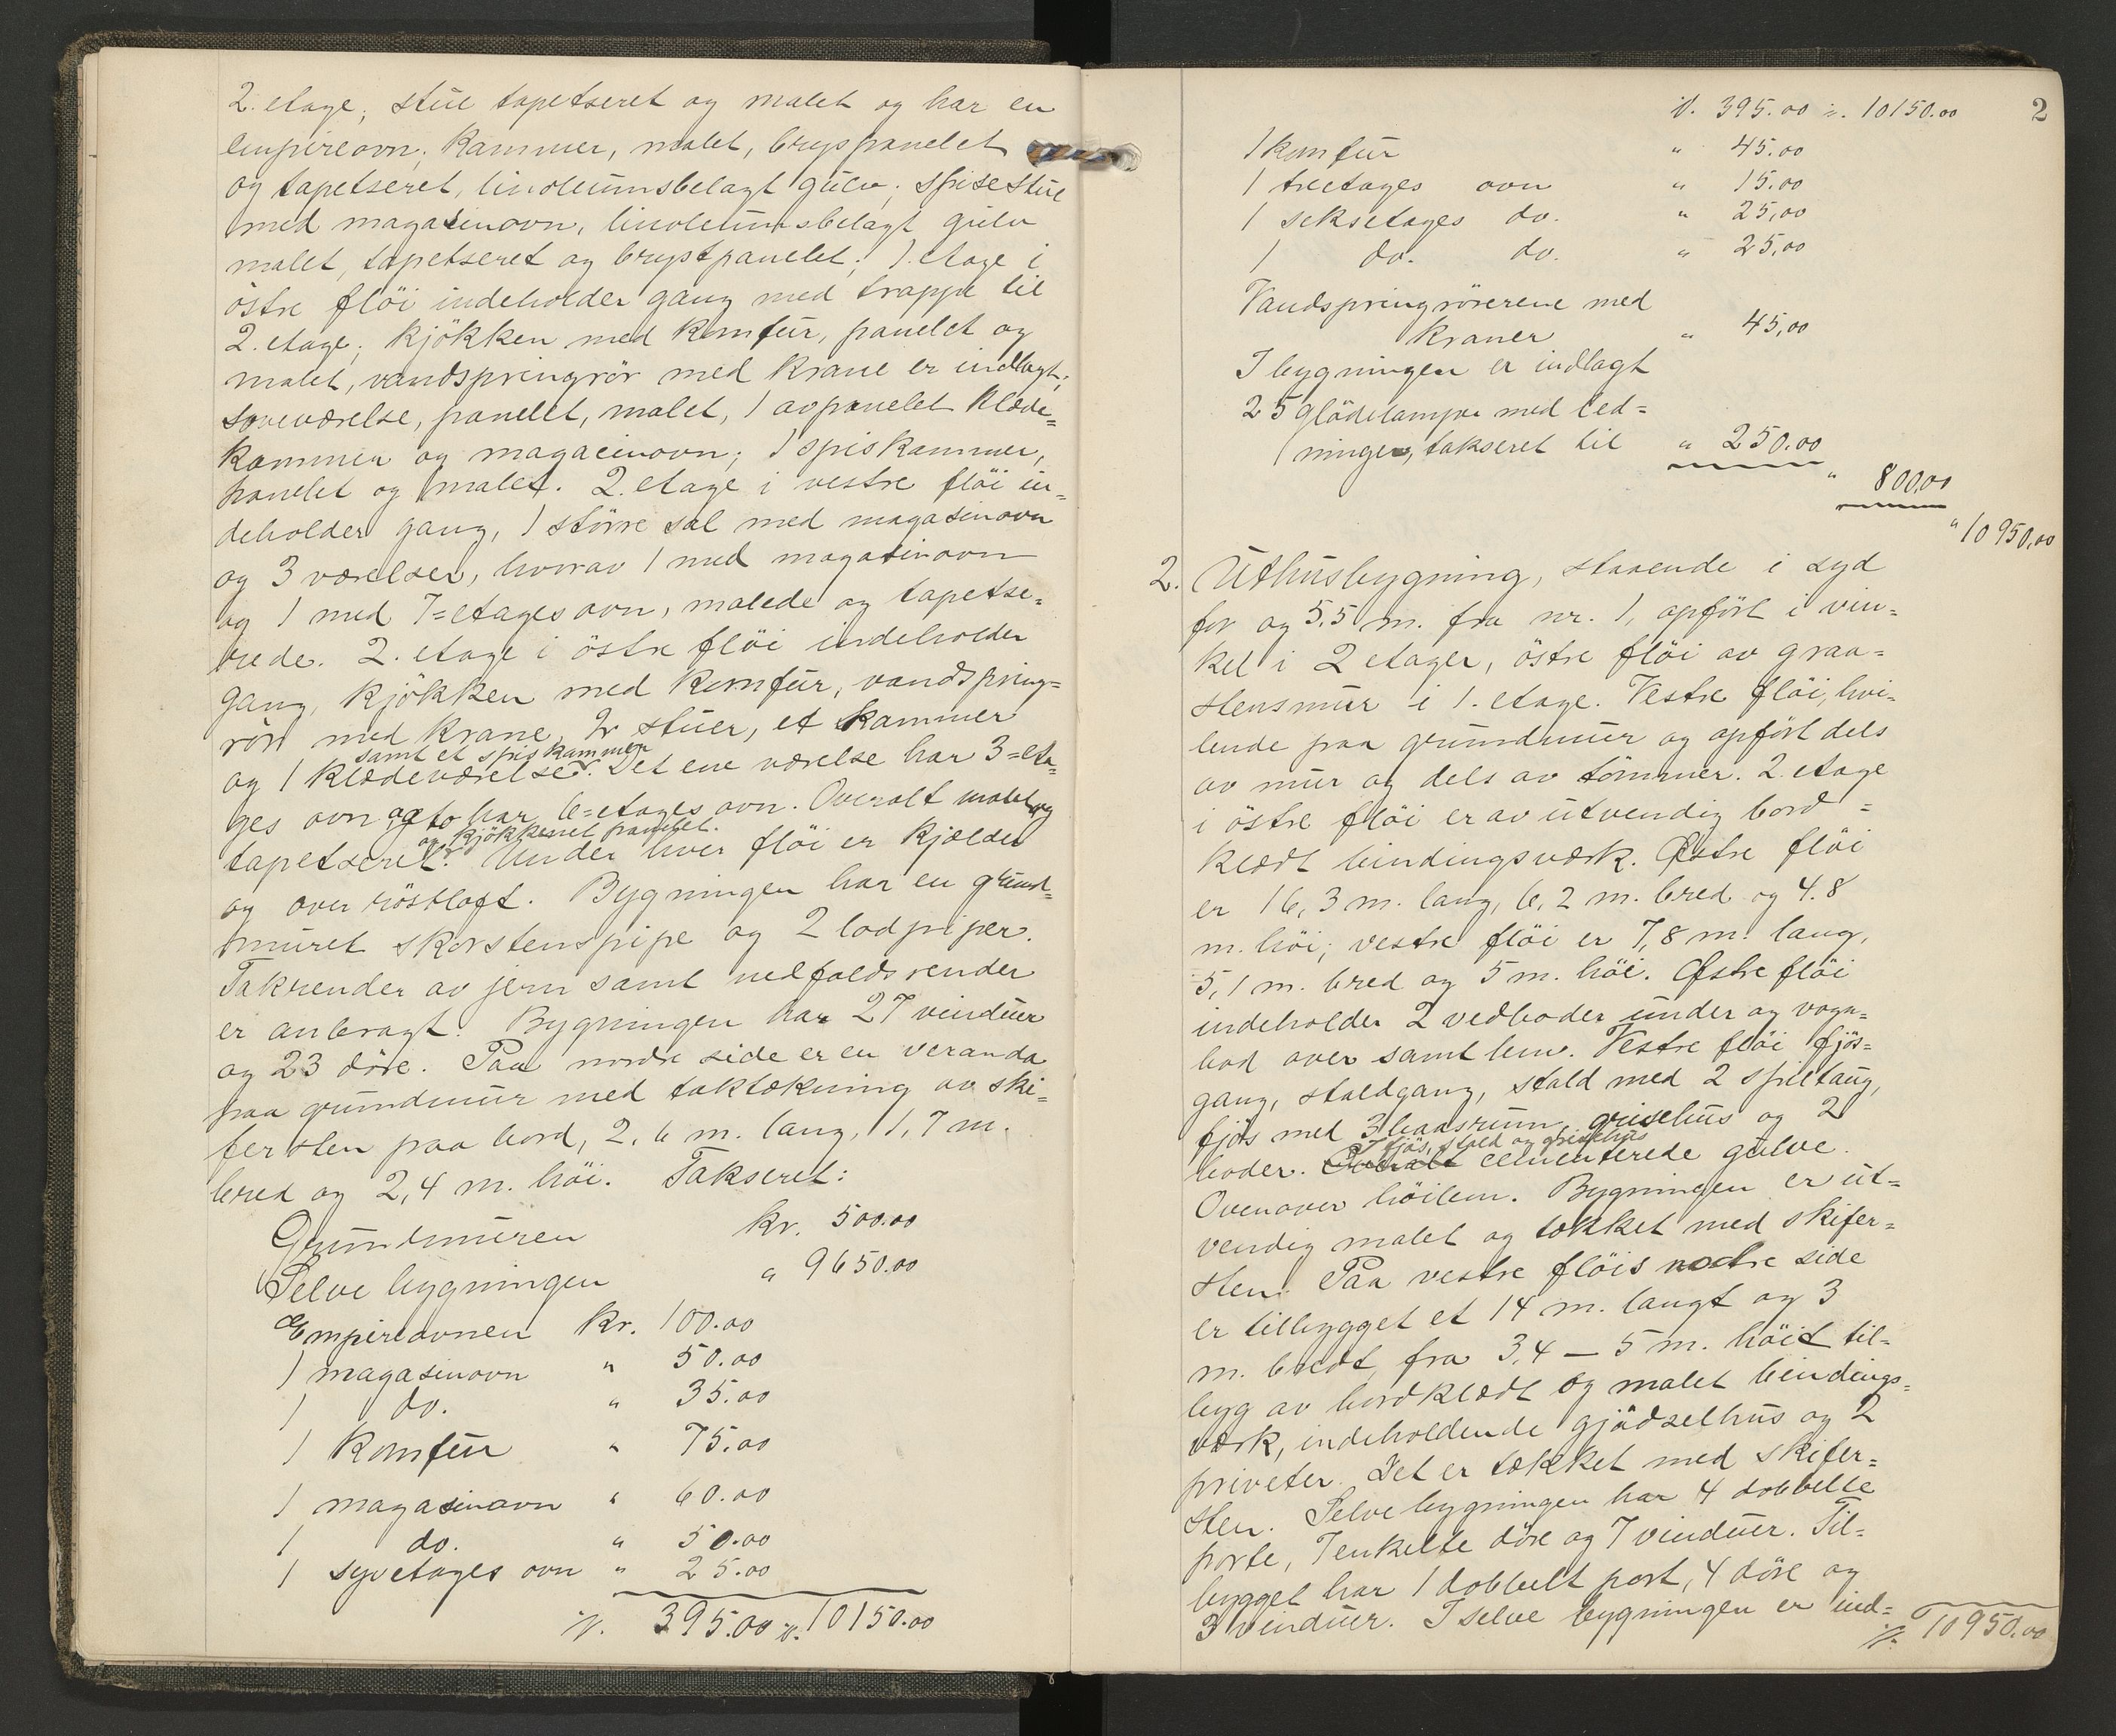 2. etage; stue tapetseret og malet og har en
empireovn; kammer, malet, brystpanelet
og tapetseret, linoleumsbelagt gulv; spisestue
med magasinovn, linoleumsbelagt gulv
malet, tapetseret og brystpanelet; 1. etage i
östre flöi indeholder gang med trappe til
2. etage; kjökken med komfur, panelet og
malet, vandspringrör med krane er indlagt;
soveværelse, panelet, malet, 1 avpanelet klæde=
kammer og magasinovn; 1 spiskammer,
panelet og malet. 2. etage i vestre flöi in=
deholder gang, 1 större sal med magasinovn
og 3 værelser, hvorav 1 med magasinovn
og 1 med 7=etages ovn, malede og tapetse=
rede. 2. etage i östre flöi indeholder
gang, kjökken med komfur, vandspring=
rör med krane, 2 stuer, et kammer
samt et spiskammer
og 1 klædeværelse. Det ene værelse har 3=eta=
ges ovn og to har 6=etages ovn. Overalt malet og
og kjökkenet panelet.
tapetseret. Under hver flöi er kjælder
og over röstloft. Bygningen har en grund=
muret skorstenspipe og 2 lodpiper.
Takrender av jern samt nedfaldsrender
er anbragt. Bygningen har 27 vinduer
og 23 döre. Paa nordre side er en veranda
paa grundmur med taktækning av ski=
fersten paa bord, 2,6 m. lang, 1,7 m.
bred og 2,4 m. höi. Takseret:
Grundmuren kr. 500.00
Selve bygningen " 9650.00
Empireovnen kr. 100.00
1 magasinovn " 50.00
1 do. " 35.00
1 Komfur " 75.00
1 magasinovn " 60.00
1 do. " 50.00
1 syvetages ovn " 25.00
395.00 10150.00
2
395.00 10150.00
1 komfur " 45.00
1 treetages ovn " 15.00
1 seksetages do. " 25,00
1 do. do. " 25,00
Vandspringrörerene med
kraner " 45,00
I bygningen er indlagt
25 glödelamper med led=
ninger, takseret til " 250.00
" 800,00
" 10950,00
2. Uthusbygning, staaende i syd
for og 5,5 m. fra nr. 1, opfört i vin=
kel i 2 etager, östre flöi av graa=
stensmur i 1. etage. Vestre flöi, hvi=
lende paa grundmur og opfört dels
av mur og dels av tömmer. 2. etage
i östre flöi er av utvendig bord=
klædt bindingsværk. Østre flöi
er 16,3 m. lang, 6,2 m. bred og 4.8
m. höi; vestre flöi er 7,8 m. lang,
5,1 m. bred og 5 m. höi. Østre flöi
indeholder 2 vedboder under og vogn=
bod over samt lem. Vestre flöi fjös=
gang, staldgang, stald med 2 spiltaug,
fjös med 3 baasrum, grisehus og 2
I fjös, stald og grisehus
boder. Overalt cementerede gulve.
Ovenover höilem. Bygningen er ut=
vendig malet og tækket med skifer=
sten. Paa vestre flöis nordre side
er tilbygget et 14 m. langt og 3
m. bredt, fra 3,4 — 5 m. höit til=
byg av bordklædt og malet bindings=
værk, indeholdende gjödselhus og 2
priveter. Det er tækket med skifer=
sten. Selve bygningen har 4 dobbelte
porte, 7 enkelte döre og 7 vinduer. Til=
bygget har 1 dobbelt port, 4 döre og
3 vinduer. I selve bygningen er ind=
10950.00